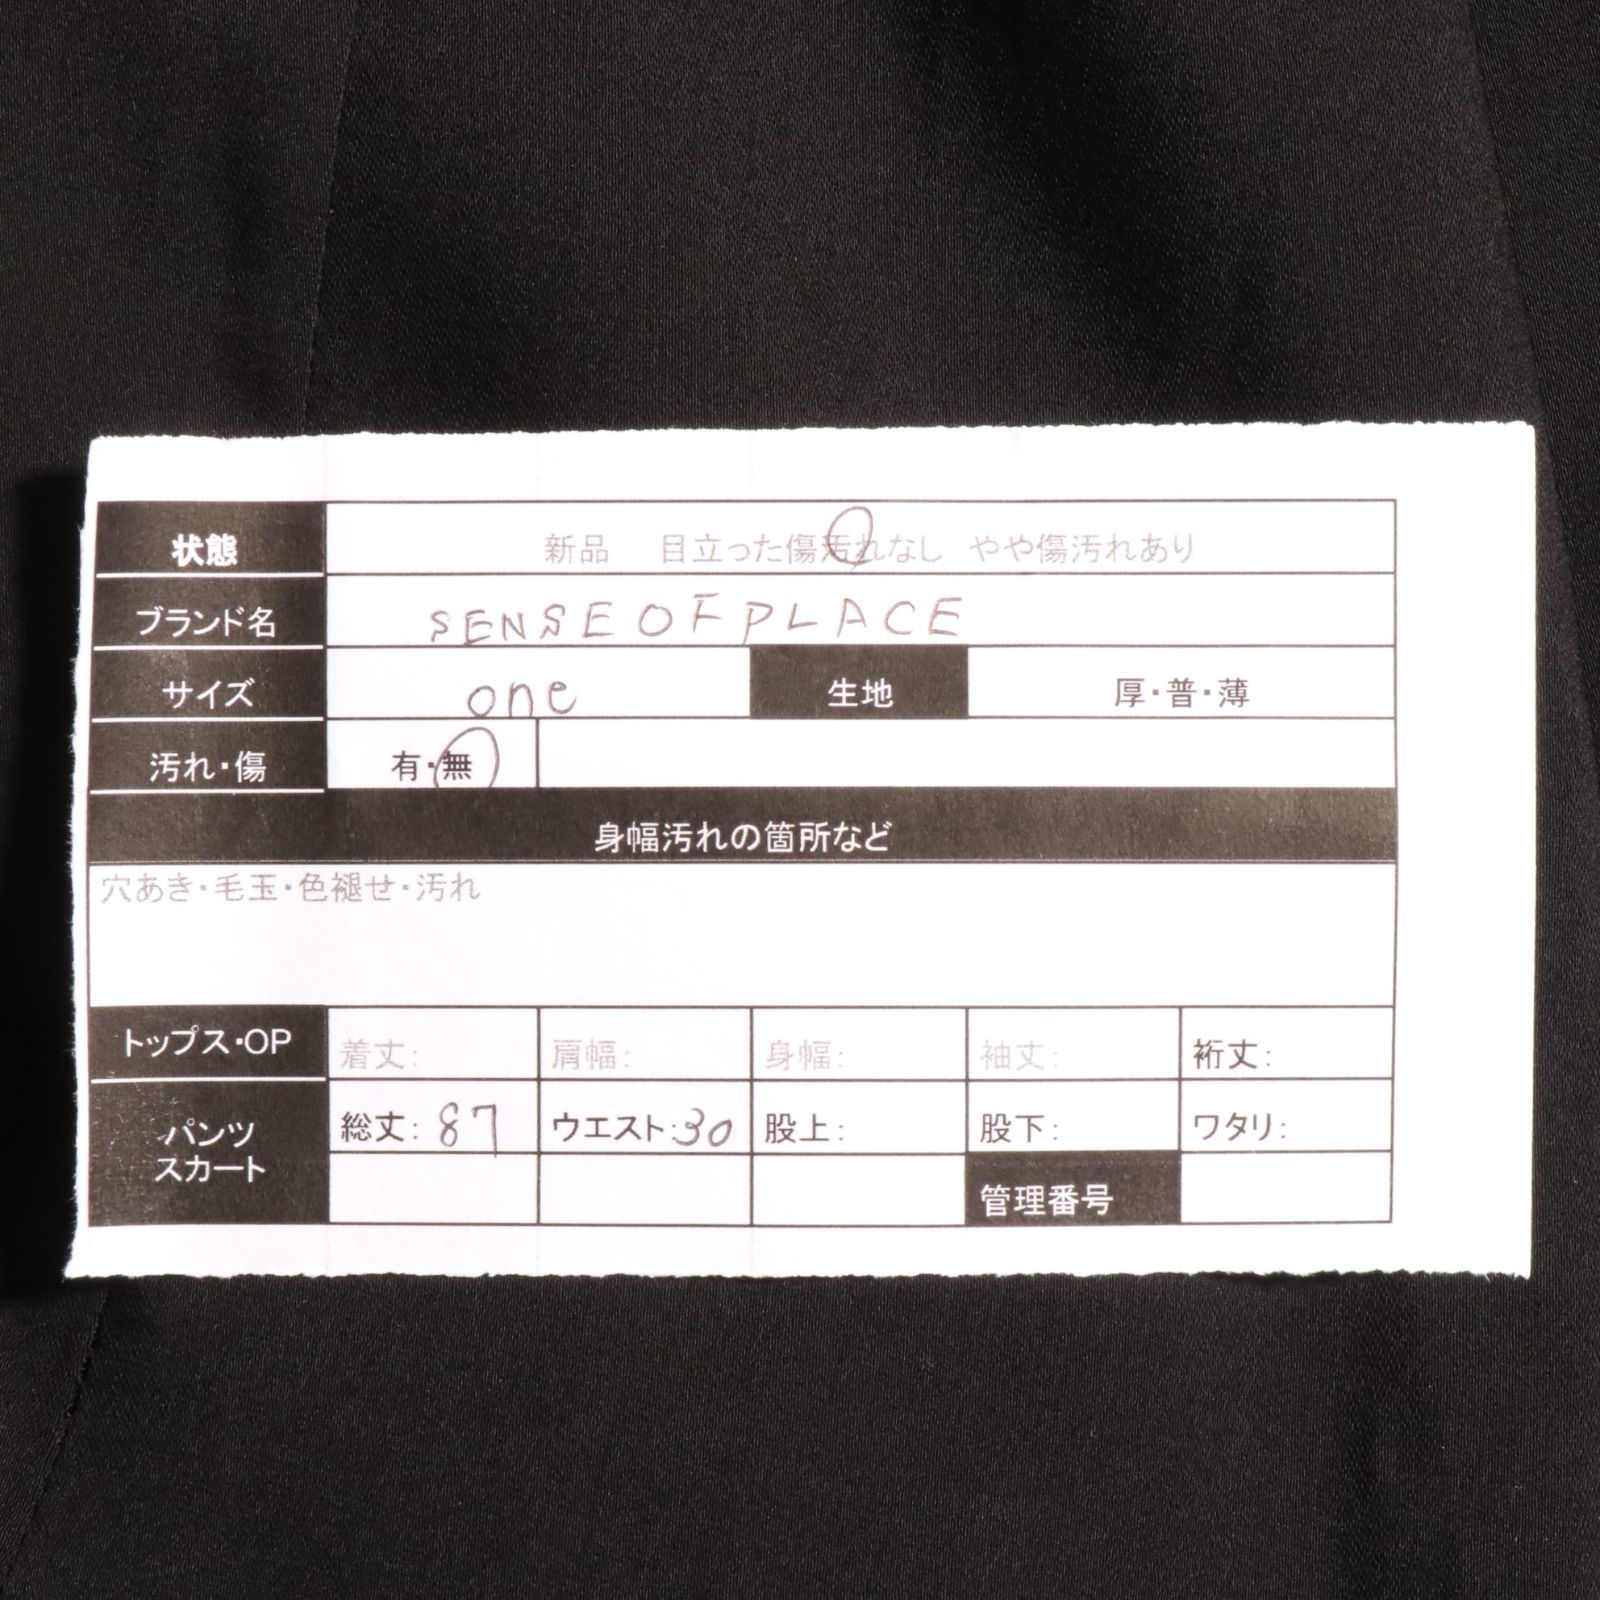 状態 新品 目立った傷汚れなし やや傷汚れあり
ブランド名 SENSE OF PLACE
サイズ one 生地 厚・普・薄
汚れ・傷 有・無
身幅汚れの箇所など
穴あき・毛玉・色褪せ・汚れ
トップス・OP 着丈: 肩幅: 身幅: 袖丈: 裄丈:
パンツ 総丈: 87 ウエスト: 30 股上: 股下: ワタリ:
スカート 管理番号